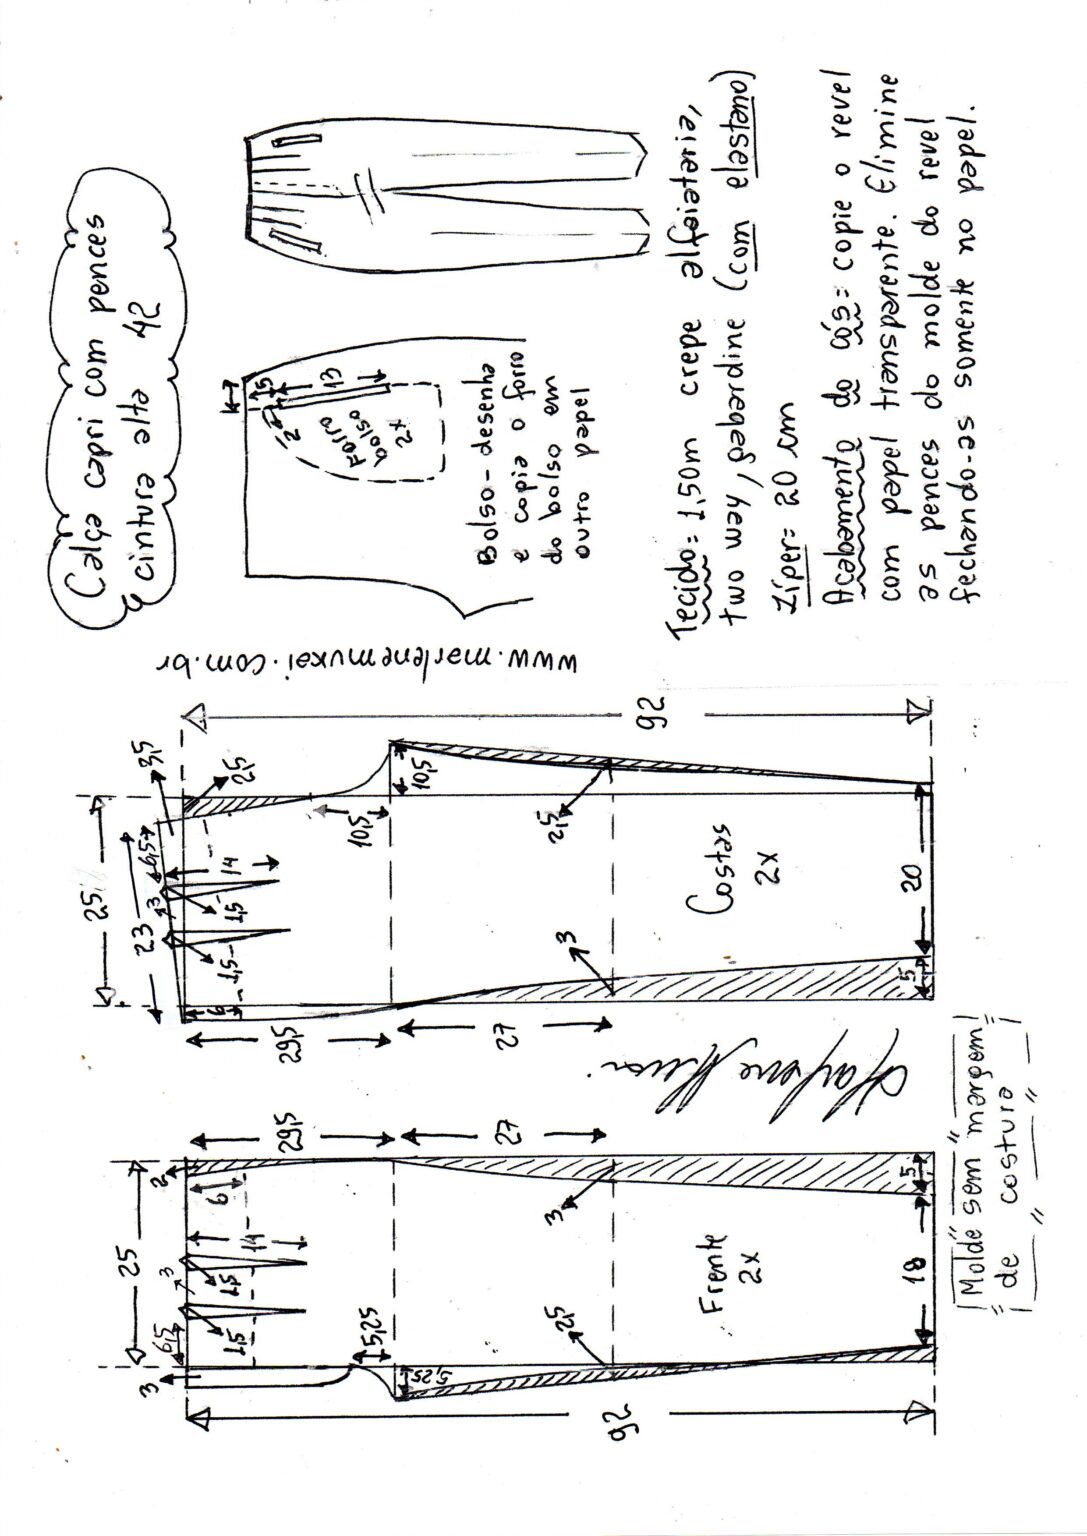 Calça capri com pences
cintura alta 42
K→
1,5
13
2
Forro
bolso
2x
Bolso-desenha
e copia o forro
do bolso em
outro papel
Tecido= 1,50m crepe alfaiataria,
two way, gabardine (com elastano)
Zíper= 20 cm
Acabamento do cós= copie o revel
com papel transparente. Elimine
as pences do molde do revel
fechando-as somente no papel.
www.marlenemukai.com.br
25
3,5
2,5
23
6,5
3
14
1,5
1,5
6
10,5
10,5
29,5
27
2,5
3
Costas
2x
20
5
92
Marlene Mukai
25
2
6
14
3
1,5
1,5
6,5
3
5,25
5,25
29,5
27
3
2,5
Frente
2x
18
5
92
Molde sem margem
de costura